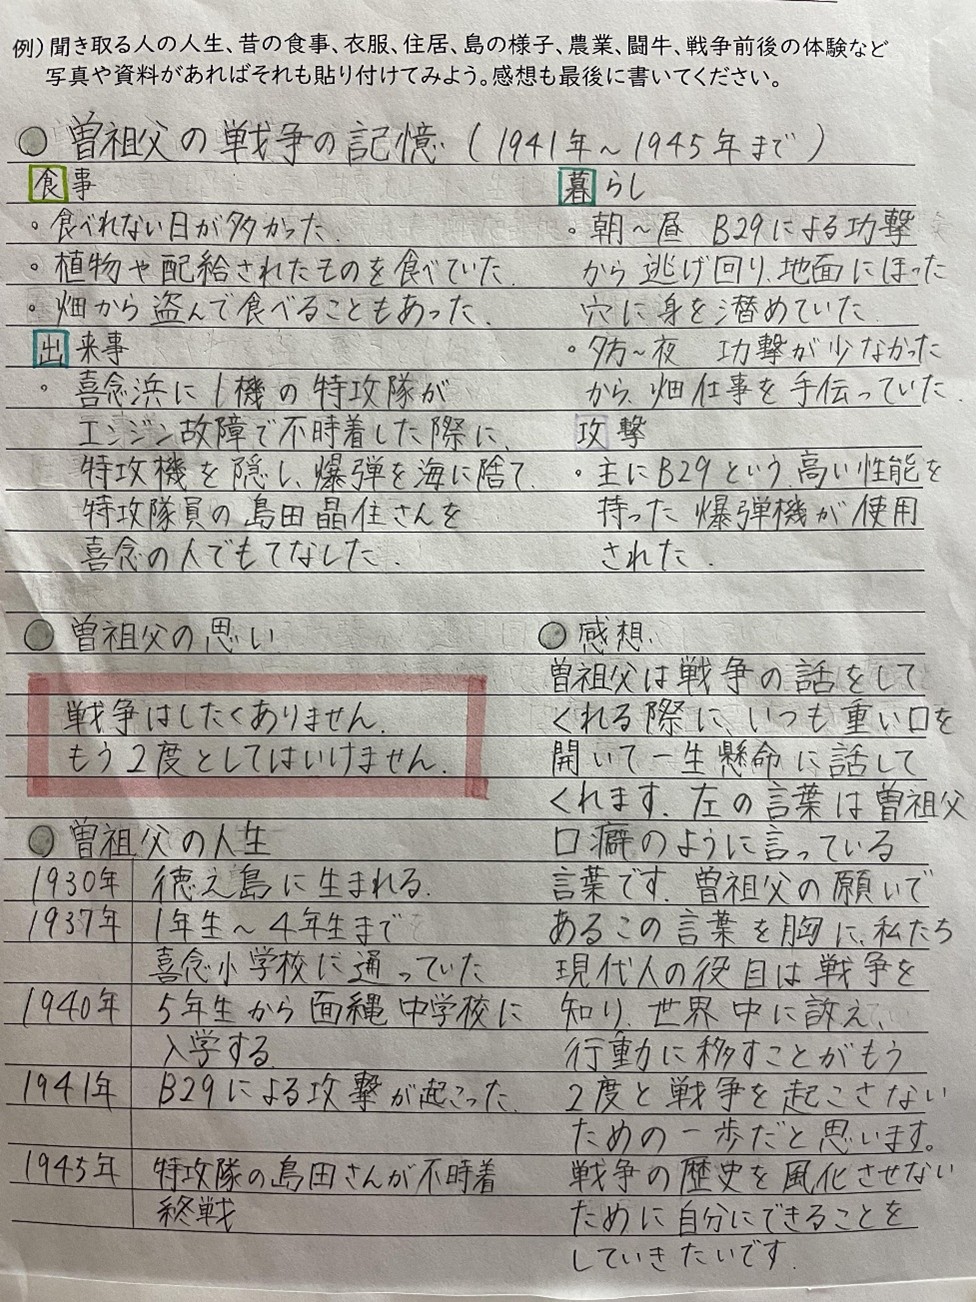 例）聞き取る人の人生、昔の食事、衣服、住居、島の様子、農業、闘牛、戦争前後の体験など
写真や資料があればそれも貼り付けてみよう。感想も最後に書いてください。
曽祖父の戦争の記憶（1941年～1945年まで）
食事
・食べれない日が多かった.
・植物や配給されたものを食べていた.
・畑から盗んで食べることもあった.
出来事
・喜念浜に1機の特攻隊が
エンジン故障で不時着した際に、
特攻機を隠し、爆弾を海に捨て.
特攻隊員の島田晶住さんを
喜念の人でもてなした.
暮らし
・朝～昼 B29による功撃
から逃げ回り、地面にほった
穴に身を潜めていた
・夕方～夜 功撃が少なかった
から、畑仕事を手伝っていた.
攻撃
・主にB29という、高い性能を
持った爆弾機が使用
された.
曽祖父の思い
戦争はしたくありません.
もう2度としてはいけません.
曽祖父の人生
1930年 徳之島に生まれる.
1937年 1年生～4年生まで
喜念小学校に通っていた
1940年 5年生から面縄中学校に
入学する.
1941年 B29による攻撃が起こった.
1945年 特攻隊の島田さんが不時着
終戦
感想.
曽祖父は戦争の話をして
くれる際に、いつも重い口を
開いて一生懸命に話して
くれます.左の言葉は曽祖父
口癖のように言っている
言葉です.曽祖父の願いで
あるこの言葉を胸に、私たち
現代人の役目は戦争を
知り、世界中に訴え、
行動に移すことがもう
2度と戦争を起こさない
ための一歩だと思います。
戦争の歴史を風化させない
ために自分にできることを
していきたいです.